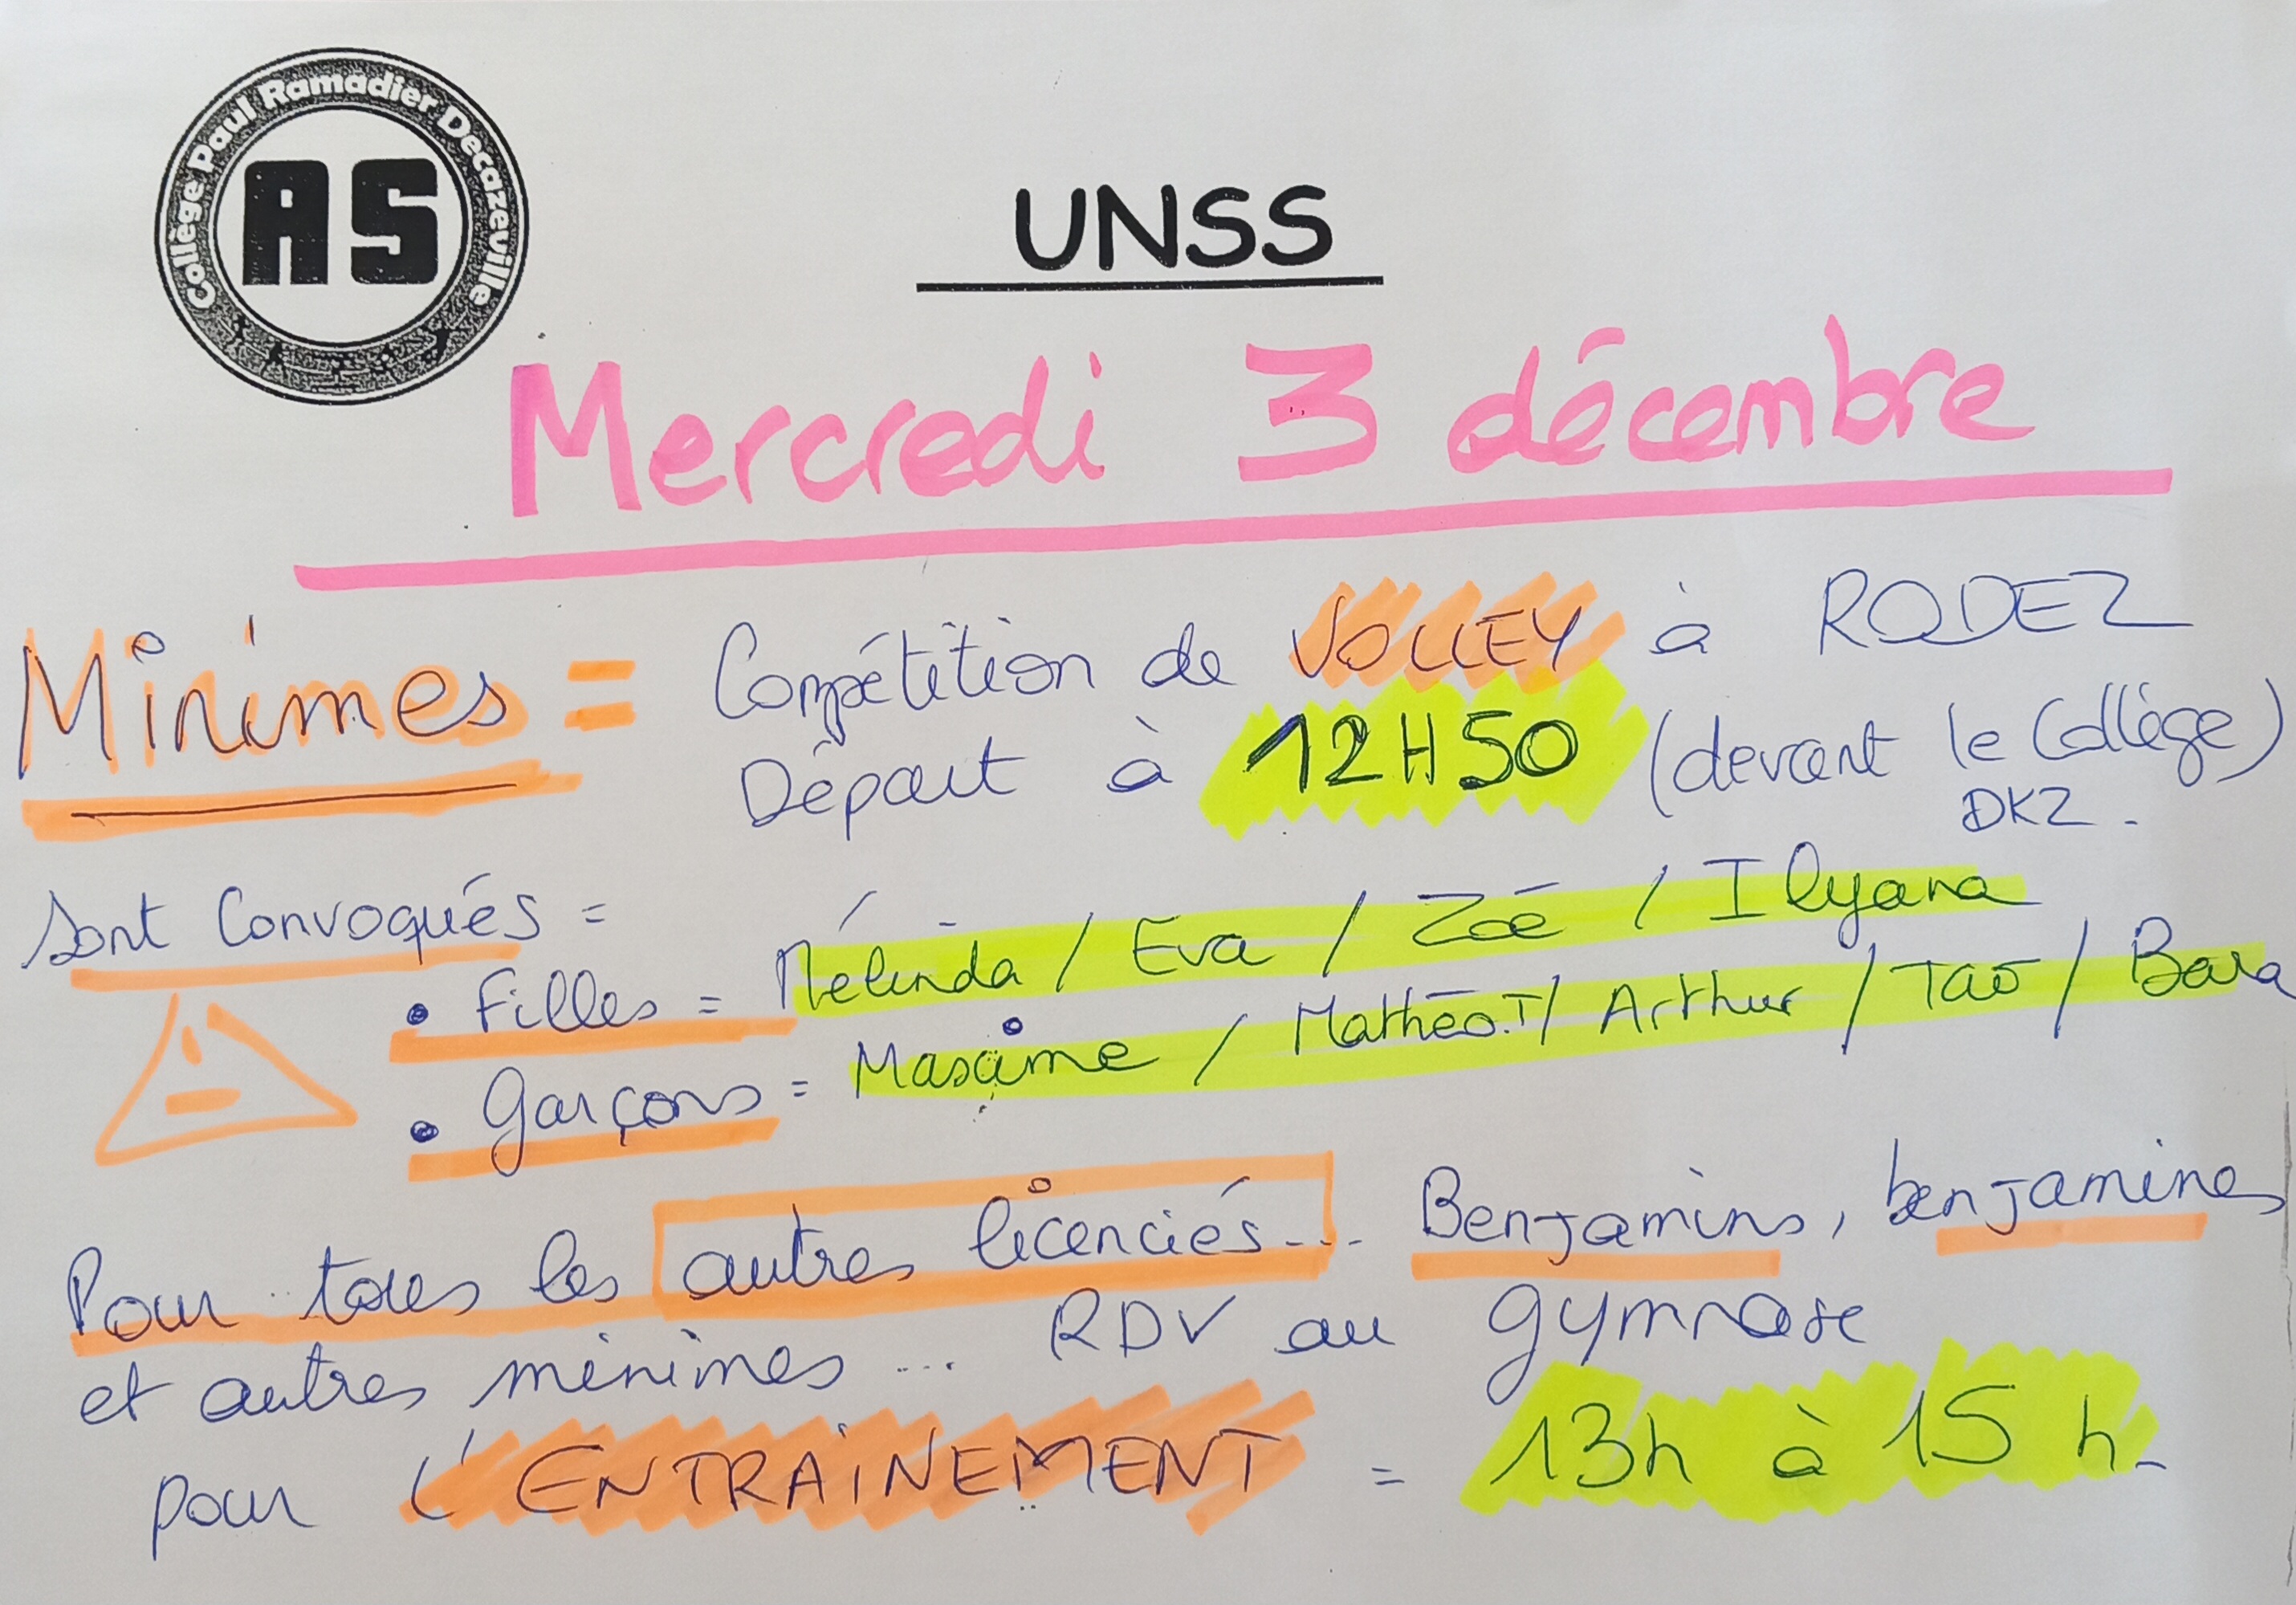 Collège Paul Ramadier Decazeville
AS
UNSS
Mercredi 3 décembre
Minimes = Compétition de VOLLEY à RODEZ
Départ à 12H50 (devant le Collège)
DKZ.
Sont Convoqués =
• Filles = Mélinda / Eva / Zoé / Ilyana
• Garçons = Maxime / Mathéo.T / Arthur / Tao / Bara
Pour tous les autres licenciés... Benjamins, benjamines
et autres minimes ... RDV au gymnase
pour l'ENTRAÎNEMENT = 13h à 15h.